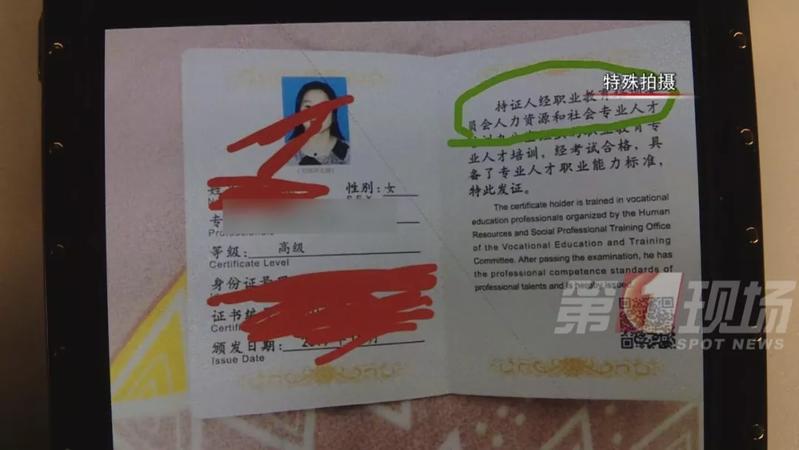 特殊拍摄
性别：女
SEX
专
等级： 高级
Certificate Level
身份证号
证书
颁发日期：
Issue Date
持证人经职业教育
员会人力资源和社会专业人才
职业教育专
业人才培训，经考试合格，具
备了专业人才职业能力标准，
特此发证。
The certificate holder is trained in vocational
education professionals organized by the Human
Resources and Social Professional Training Office
of the Vocational Education and Training
Committee. After passing the examination, he has
the professional competence standards of
professional talents and is hereby issued
第1现场
SPOT NEWS